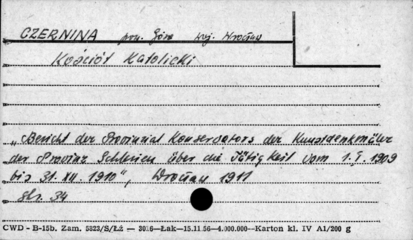 CZERNINA pow. Góra woj. Wrocław
Kościół Katolicki
„Bericht der Provinzial Konservators der Kunstdenkmäler
der Provinz Schlesien über die Tätigkeit vom 1.I.1909
bis 31.XII.1910", Wrocław 1911
str. 34
CWD - B-15b. Zam. 5823/S/Łż — 3616—Łak—15.11.56—4.000.000—Karton kl. IV A1/200 g